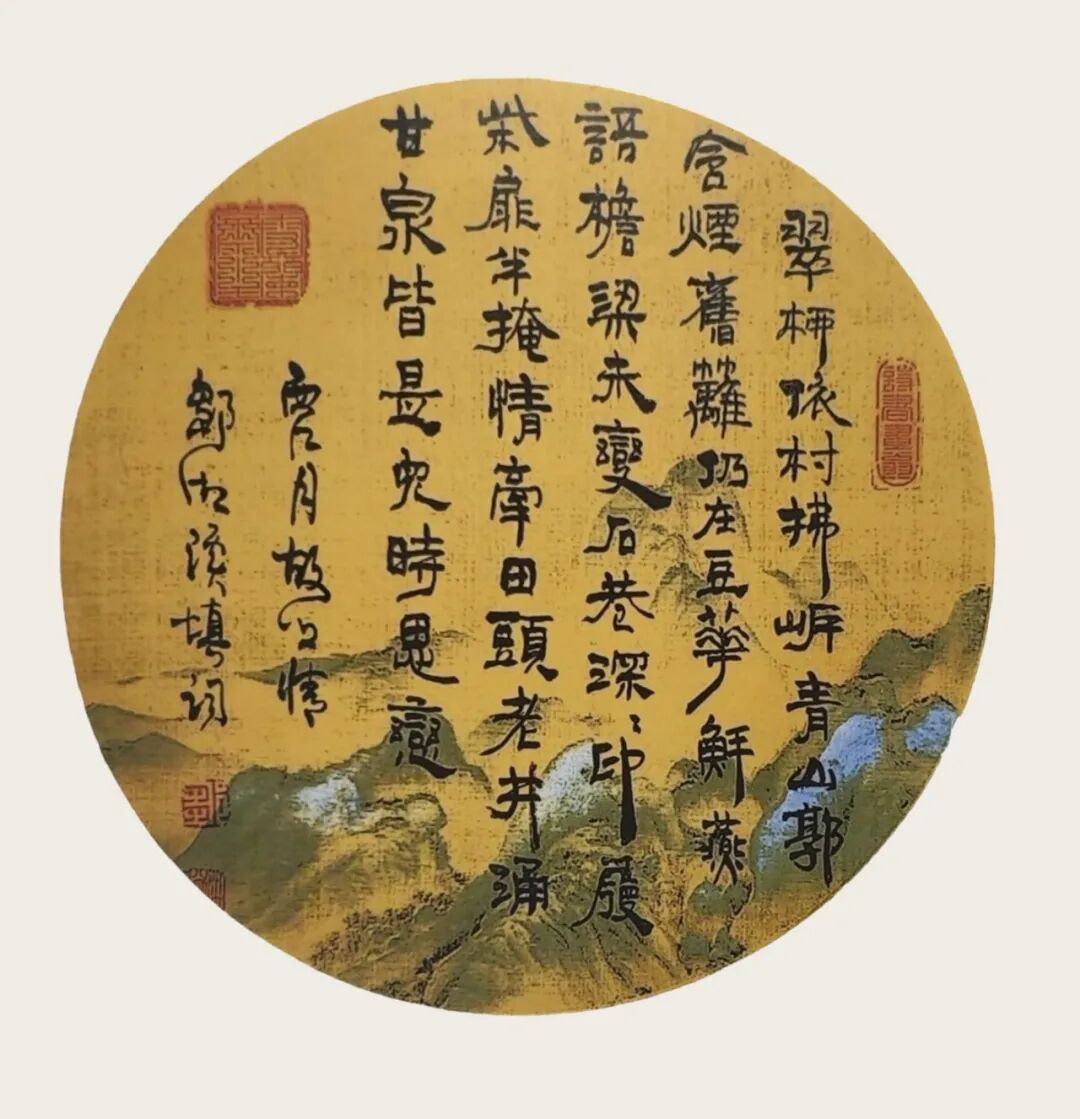 翠柳依村拂岍青山郭
含煙舊籬仍在豆華鮮燕
語檐梁未變石巷深深印履
柴扉半掩情牽田頭老井涌
甘泉皆是兒時思戀
西江月故公情
鄒湘溪填詞